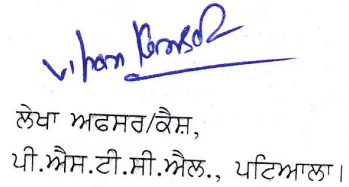 ਲੇਖਾ ਅਫਸਰ/ਕੈਸ਼,
ਪੀ.ਐਸ.ਟੀ.ਸੀ.ਐਲ., ਪਟਿਆਲਾ।